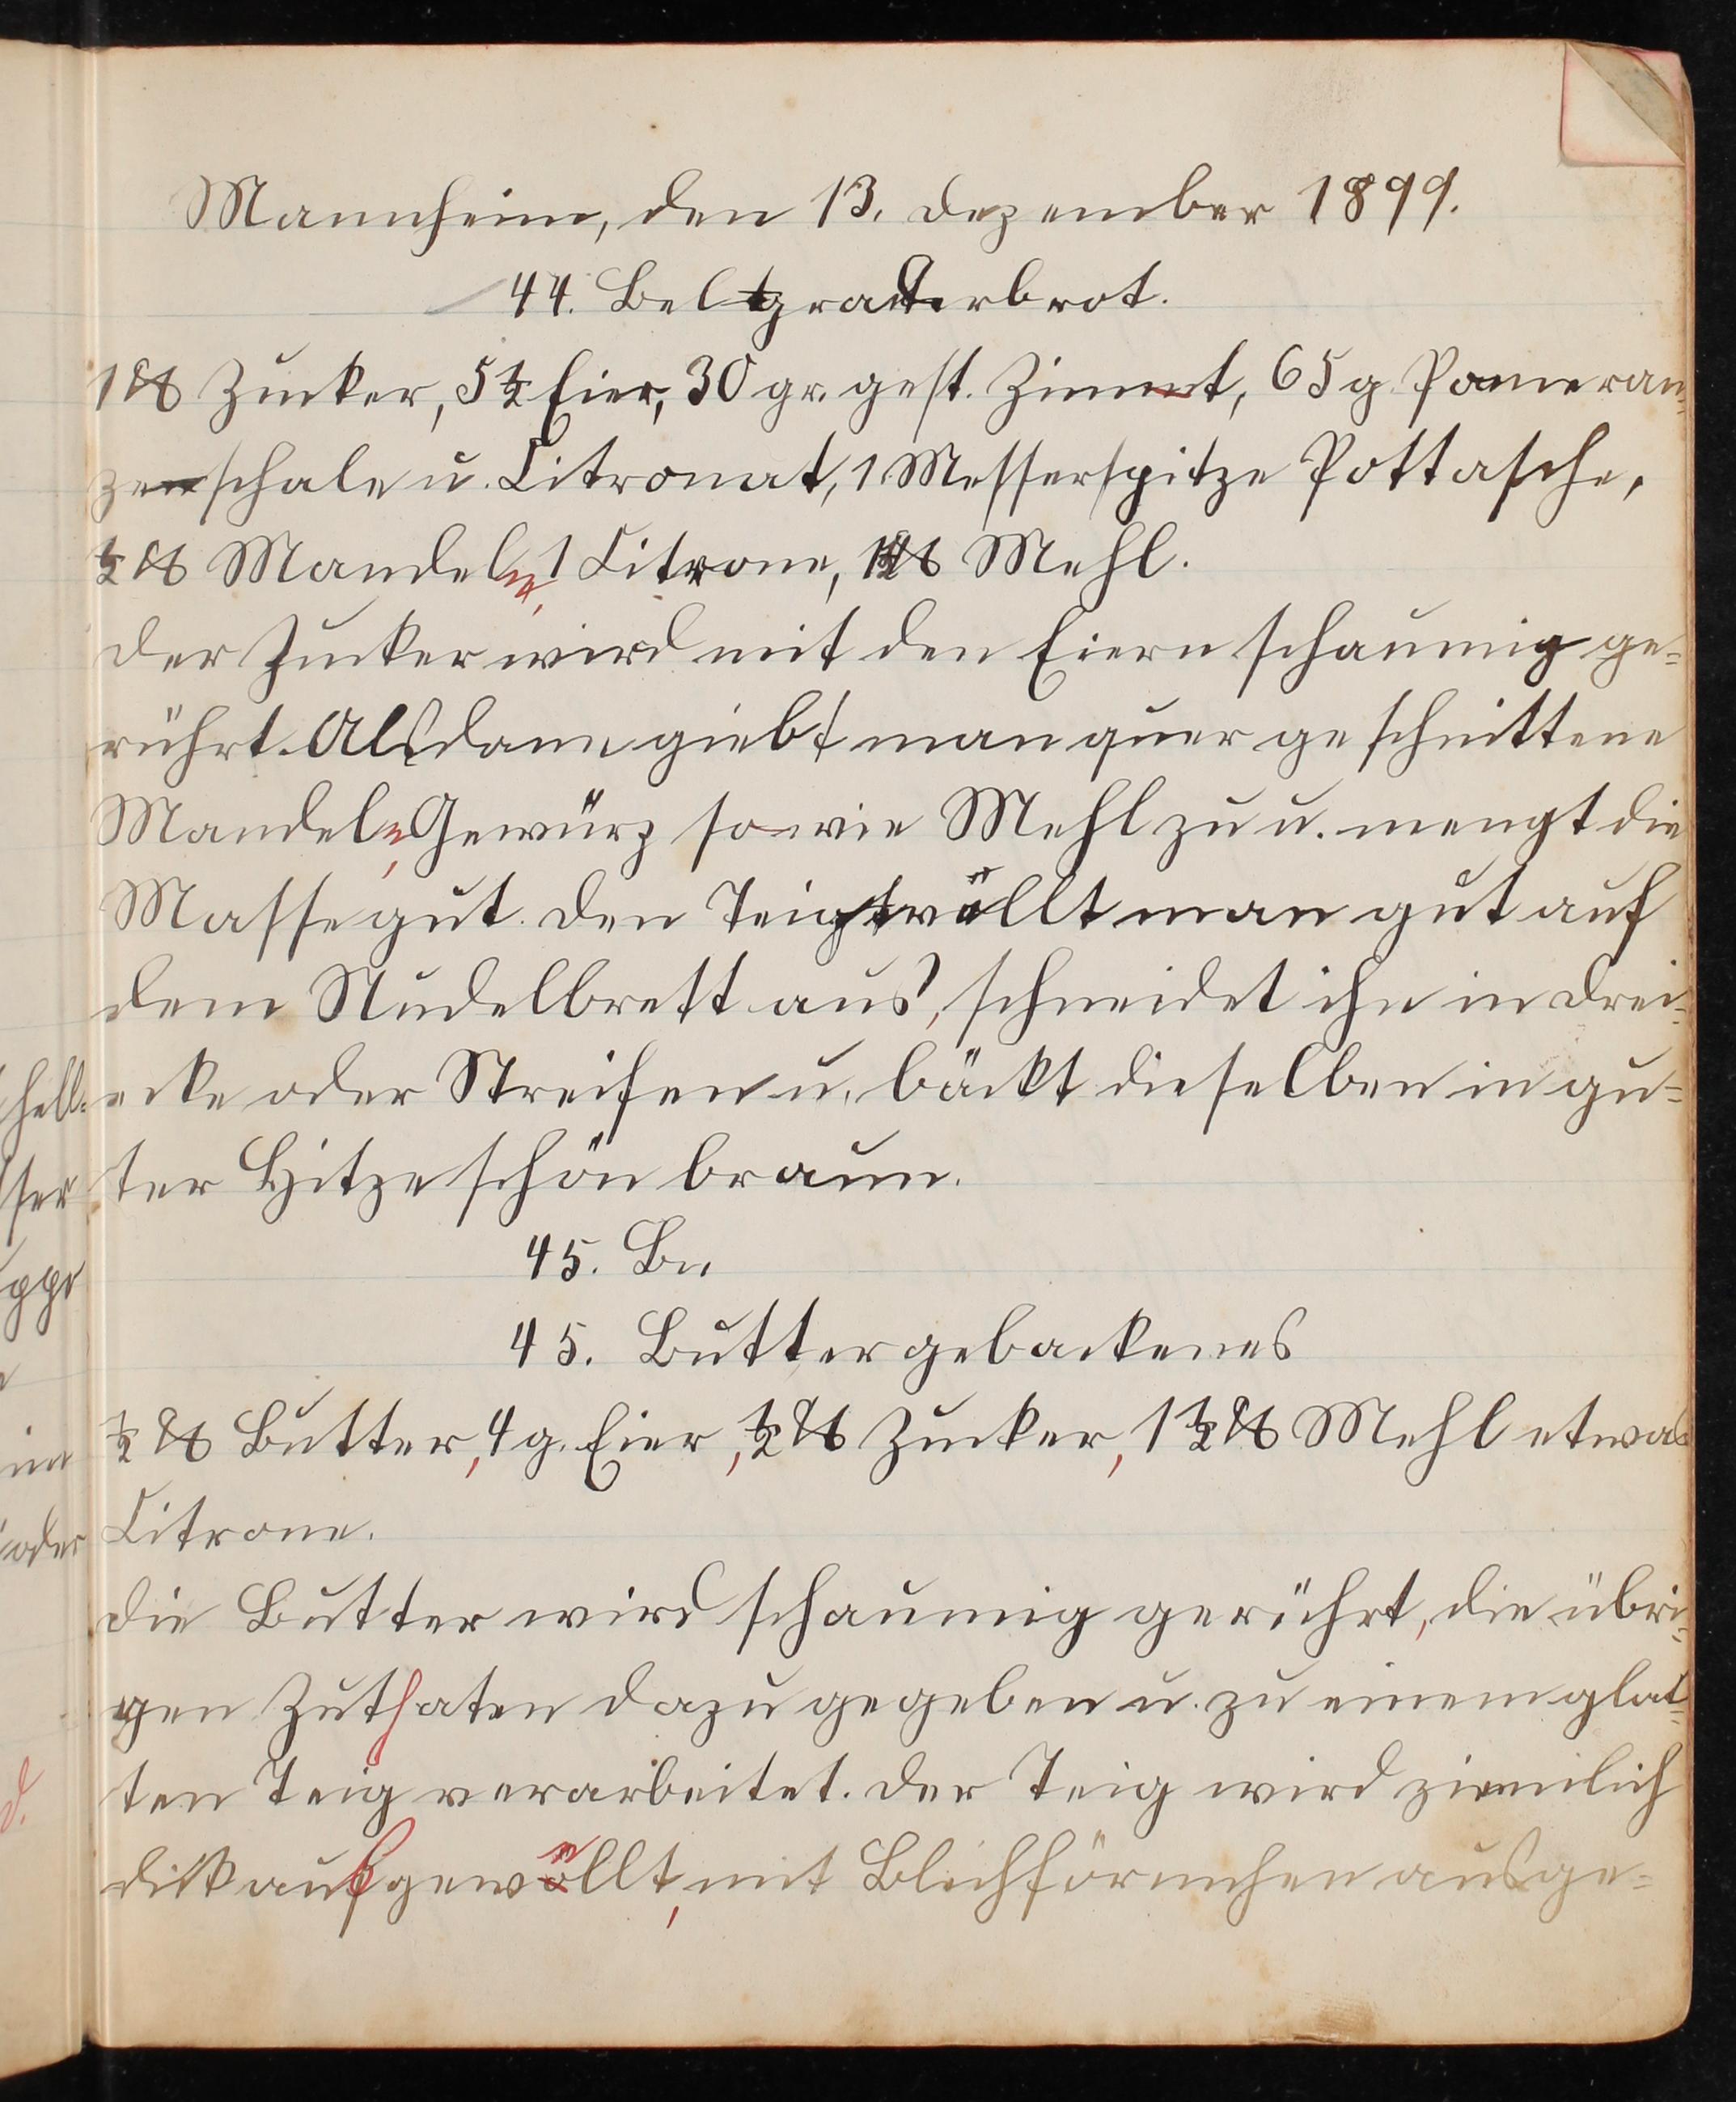 Mannheim, den 13. Dezember 1899.
44. Belgraderbrot.
1 ℔ Zucker, 5½ Eier, 30 gr. gest. Zimmt, 65 g Pomeran-
zenschale u. Citronat, 1 Messerspitze Pottasche,
½ ℔ Mandeln, 1 Citrone, 1 ℔ Mehl.
Der Zucker wird mit den Eiern schaumig ge-
rührt. Alsdann giebt man quer geschnittene
Mandeln, Gewürz sowie Mehl zu u. mengt die
Masse gut. Den Teig wëllt man gut auf
dem Nudelbrett aus, schneidet ihn in Drei-
ecke oder Streifen u. bäckt dieselben in gu-
ter Hitze schön braun.
45. Bu
45. Buttergebackenes
½ ℔ Butter, 4 g. Eier, ½ ℔ Zucker, 1½ ℔ Mehl etwas
Citrone.
Die Butter wird schaumig gerührt, die übri-
gen Zuthaten dazu gegeben u. zu einem glat-
ten Teig verarbeitet. Der Teig wird ziemlich
dick ausgewellt, mit Blechförmchen ausge-
hell-
ser
uppe
im
oder
d.